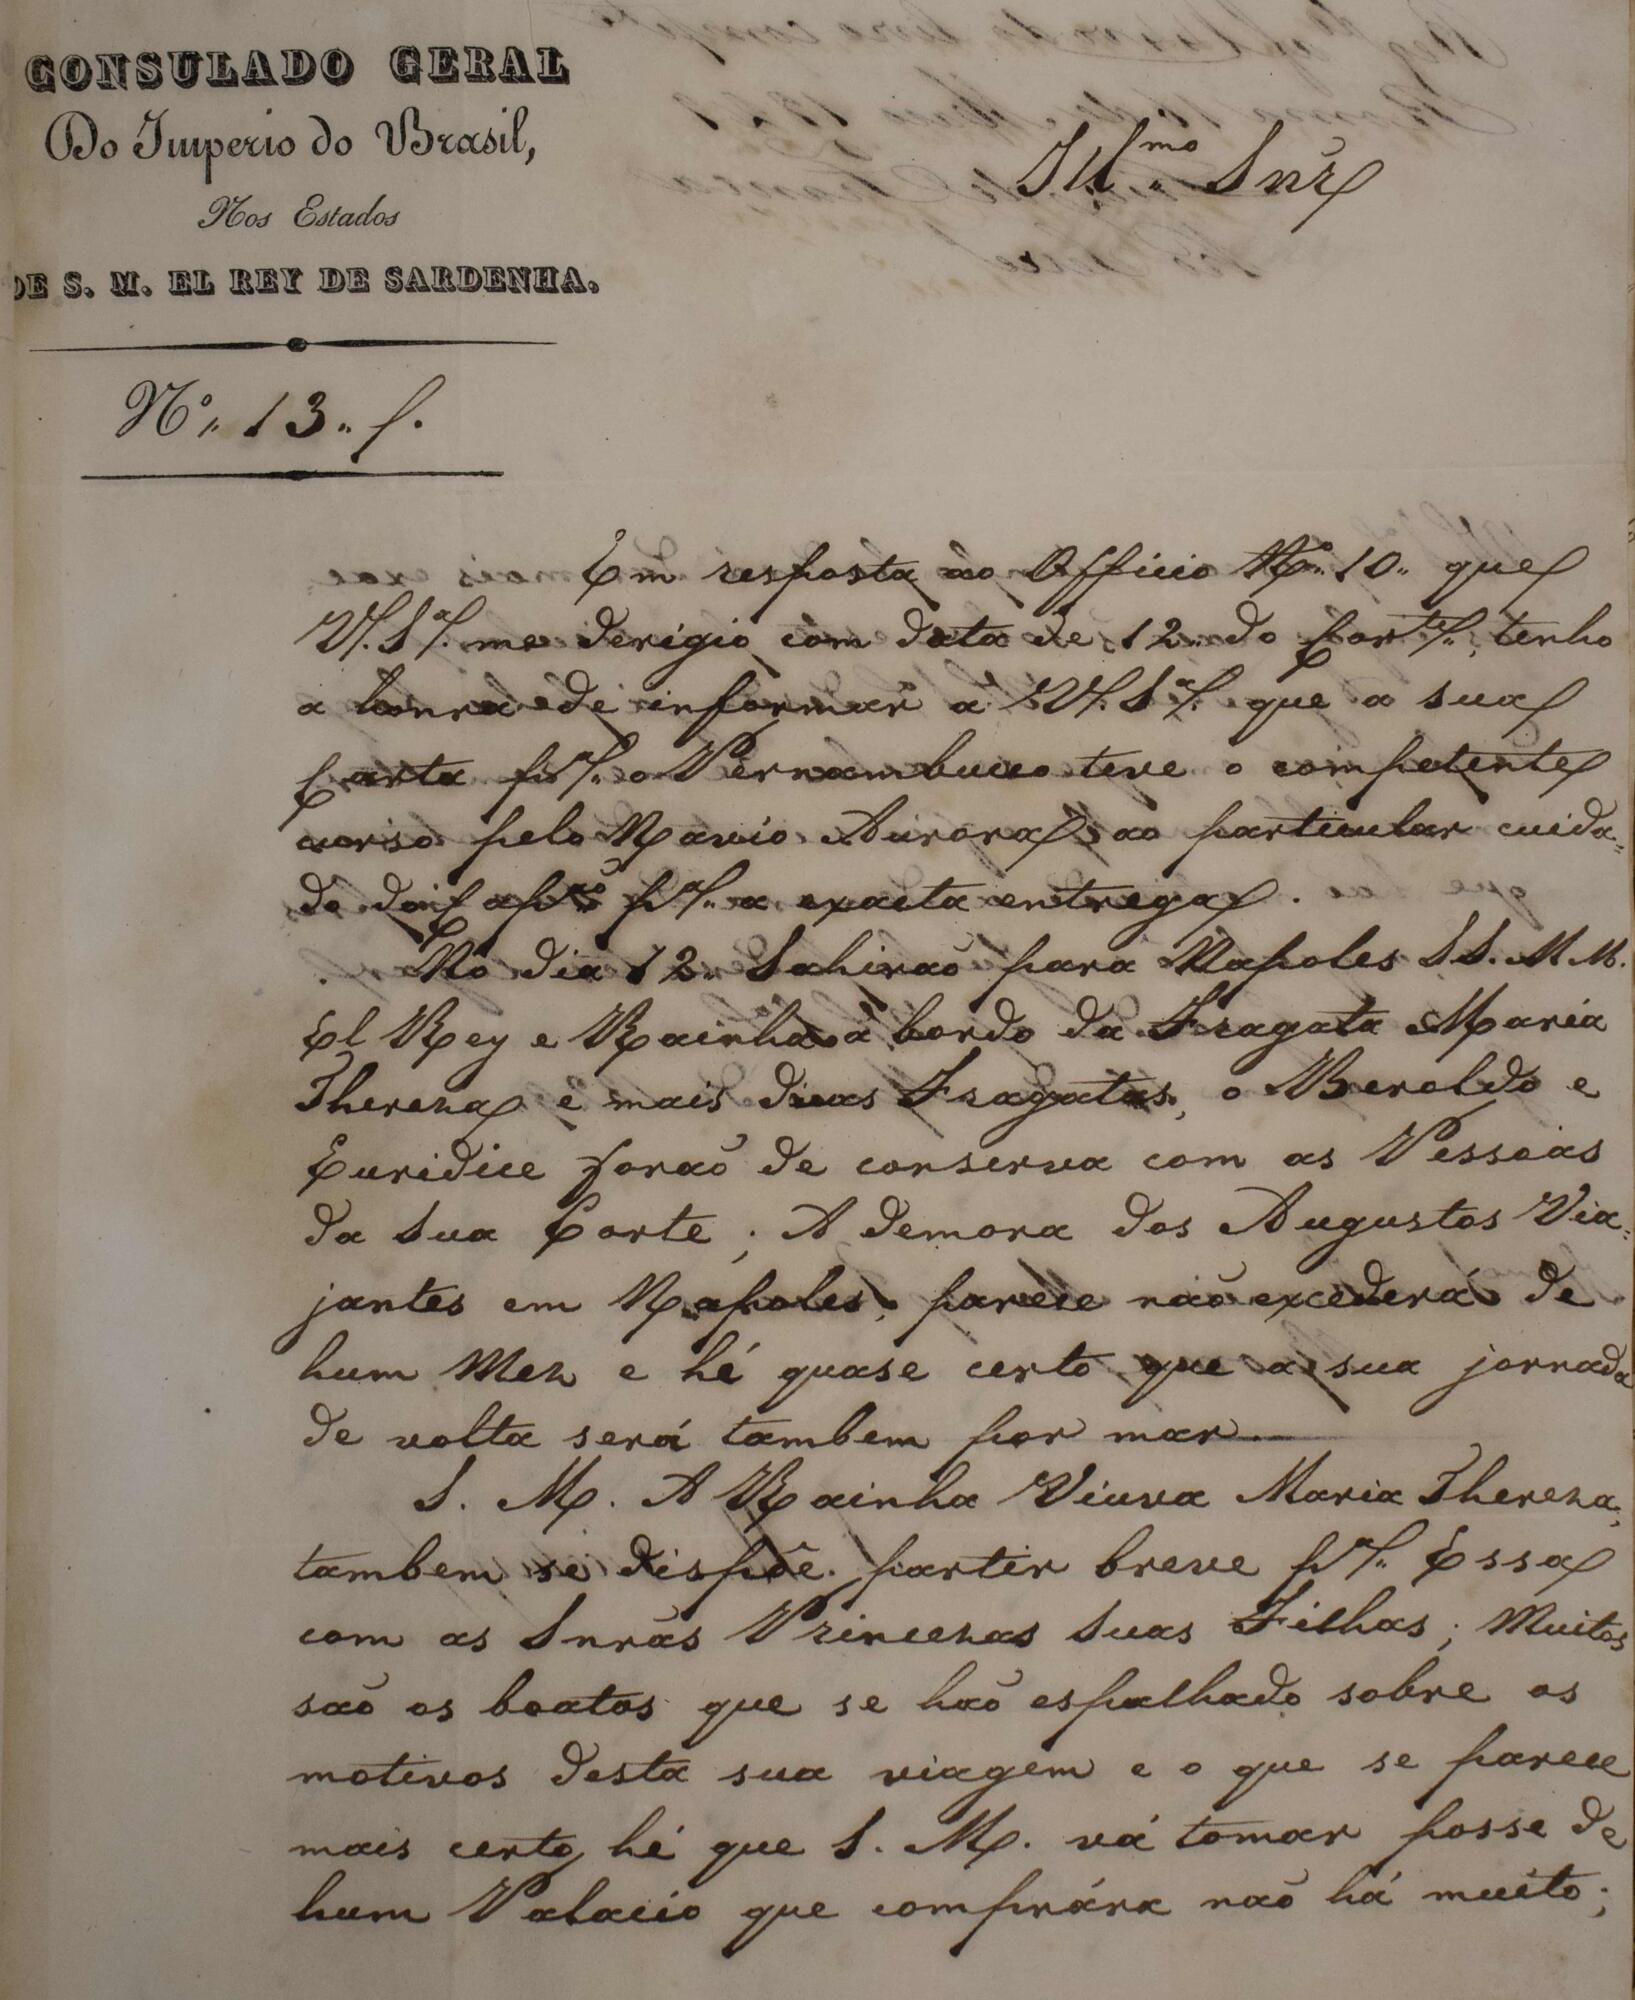 CONSULADO GERAL
Do Imperio do Brasil,
Nos Estados
DE S. M. EL REY DE SARDENHA.
Nº 13
Illmo Snr
Em resposta ao Officio Nº 10 que
V. Sª me derigio com data de 12 do Corte, tenho
a honra de informar a V. Sª que a sua
Carta pª o Pernambuco teve o competente
curso pelo Navio Aurora, ao particular cuida=
do do Capº pª a exacta entrega.
No dia 12 Sahiraõ para Napoles SS. M M.
El Rey e Rainha á bordo da Fragata Maria
Thereza e mais duas Fragatas, o Beroldo e
Euridice foraõ de conserva com as Pessoas
da Sua Corte; A demora dos Augustos Via=
jantes em Napoles, parece não excederá de
hum Mez e hé quase certo que a sua jornada
de volta será tambem por mar.
S. M. A Rainha Viuva Maria Thereza,
tambem se dispõe partir breve pª Essa
com as Snras Princezas Suas Filhas; Muitos
saõ os boatos que se haõ espalhado sobre os
motivos desta sua viagem e o que se parece
mais certo hé que S. M. vá tomar posse de
hum Palacio que comprára naõ há muito;